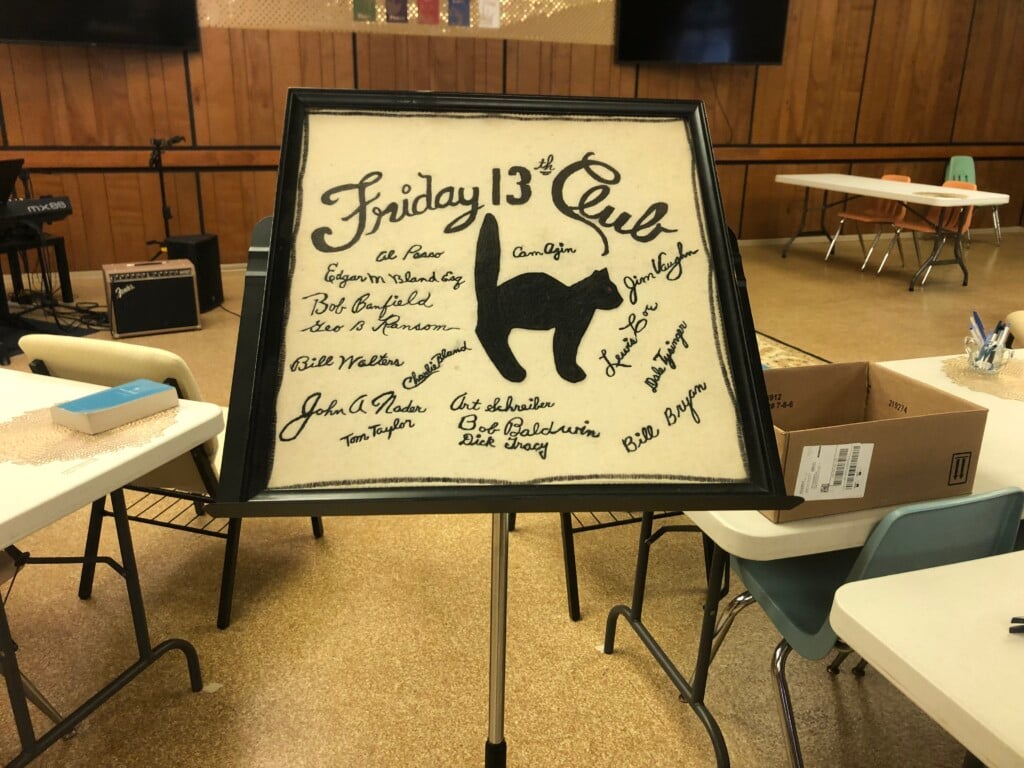 Friday 13th Club
Al Paso
Cam Agin
Edgar M Bland Esq
Jim Vaughn
Bob Banfield
Geo B Ransom
Lewis Coe
Bill Walters
Charlie Bland
Dale Tysinger
John A Nader
Art Schreiber
Tom Taylor
Bob Baldwin
Dick Tracy
Bill Bryan
mx88
Fender
219274